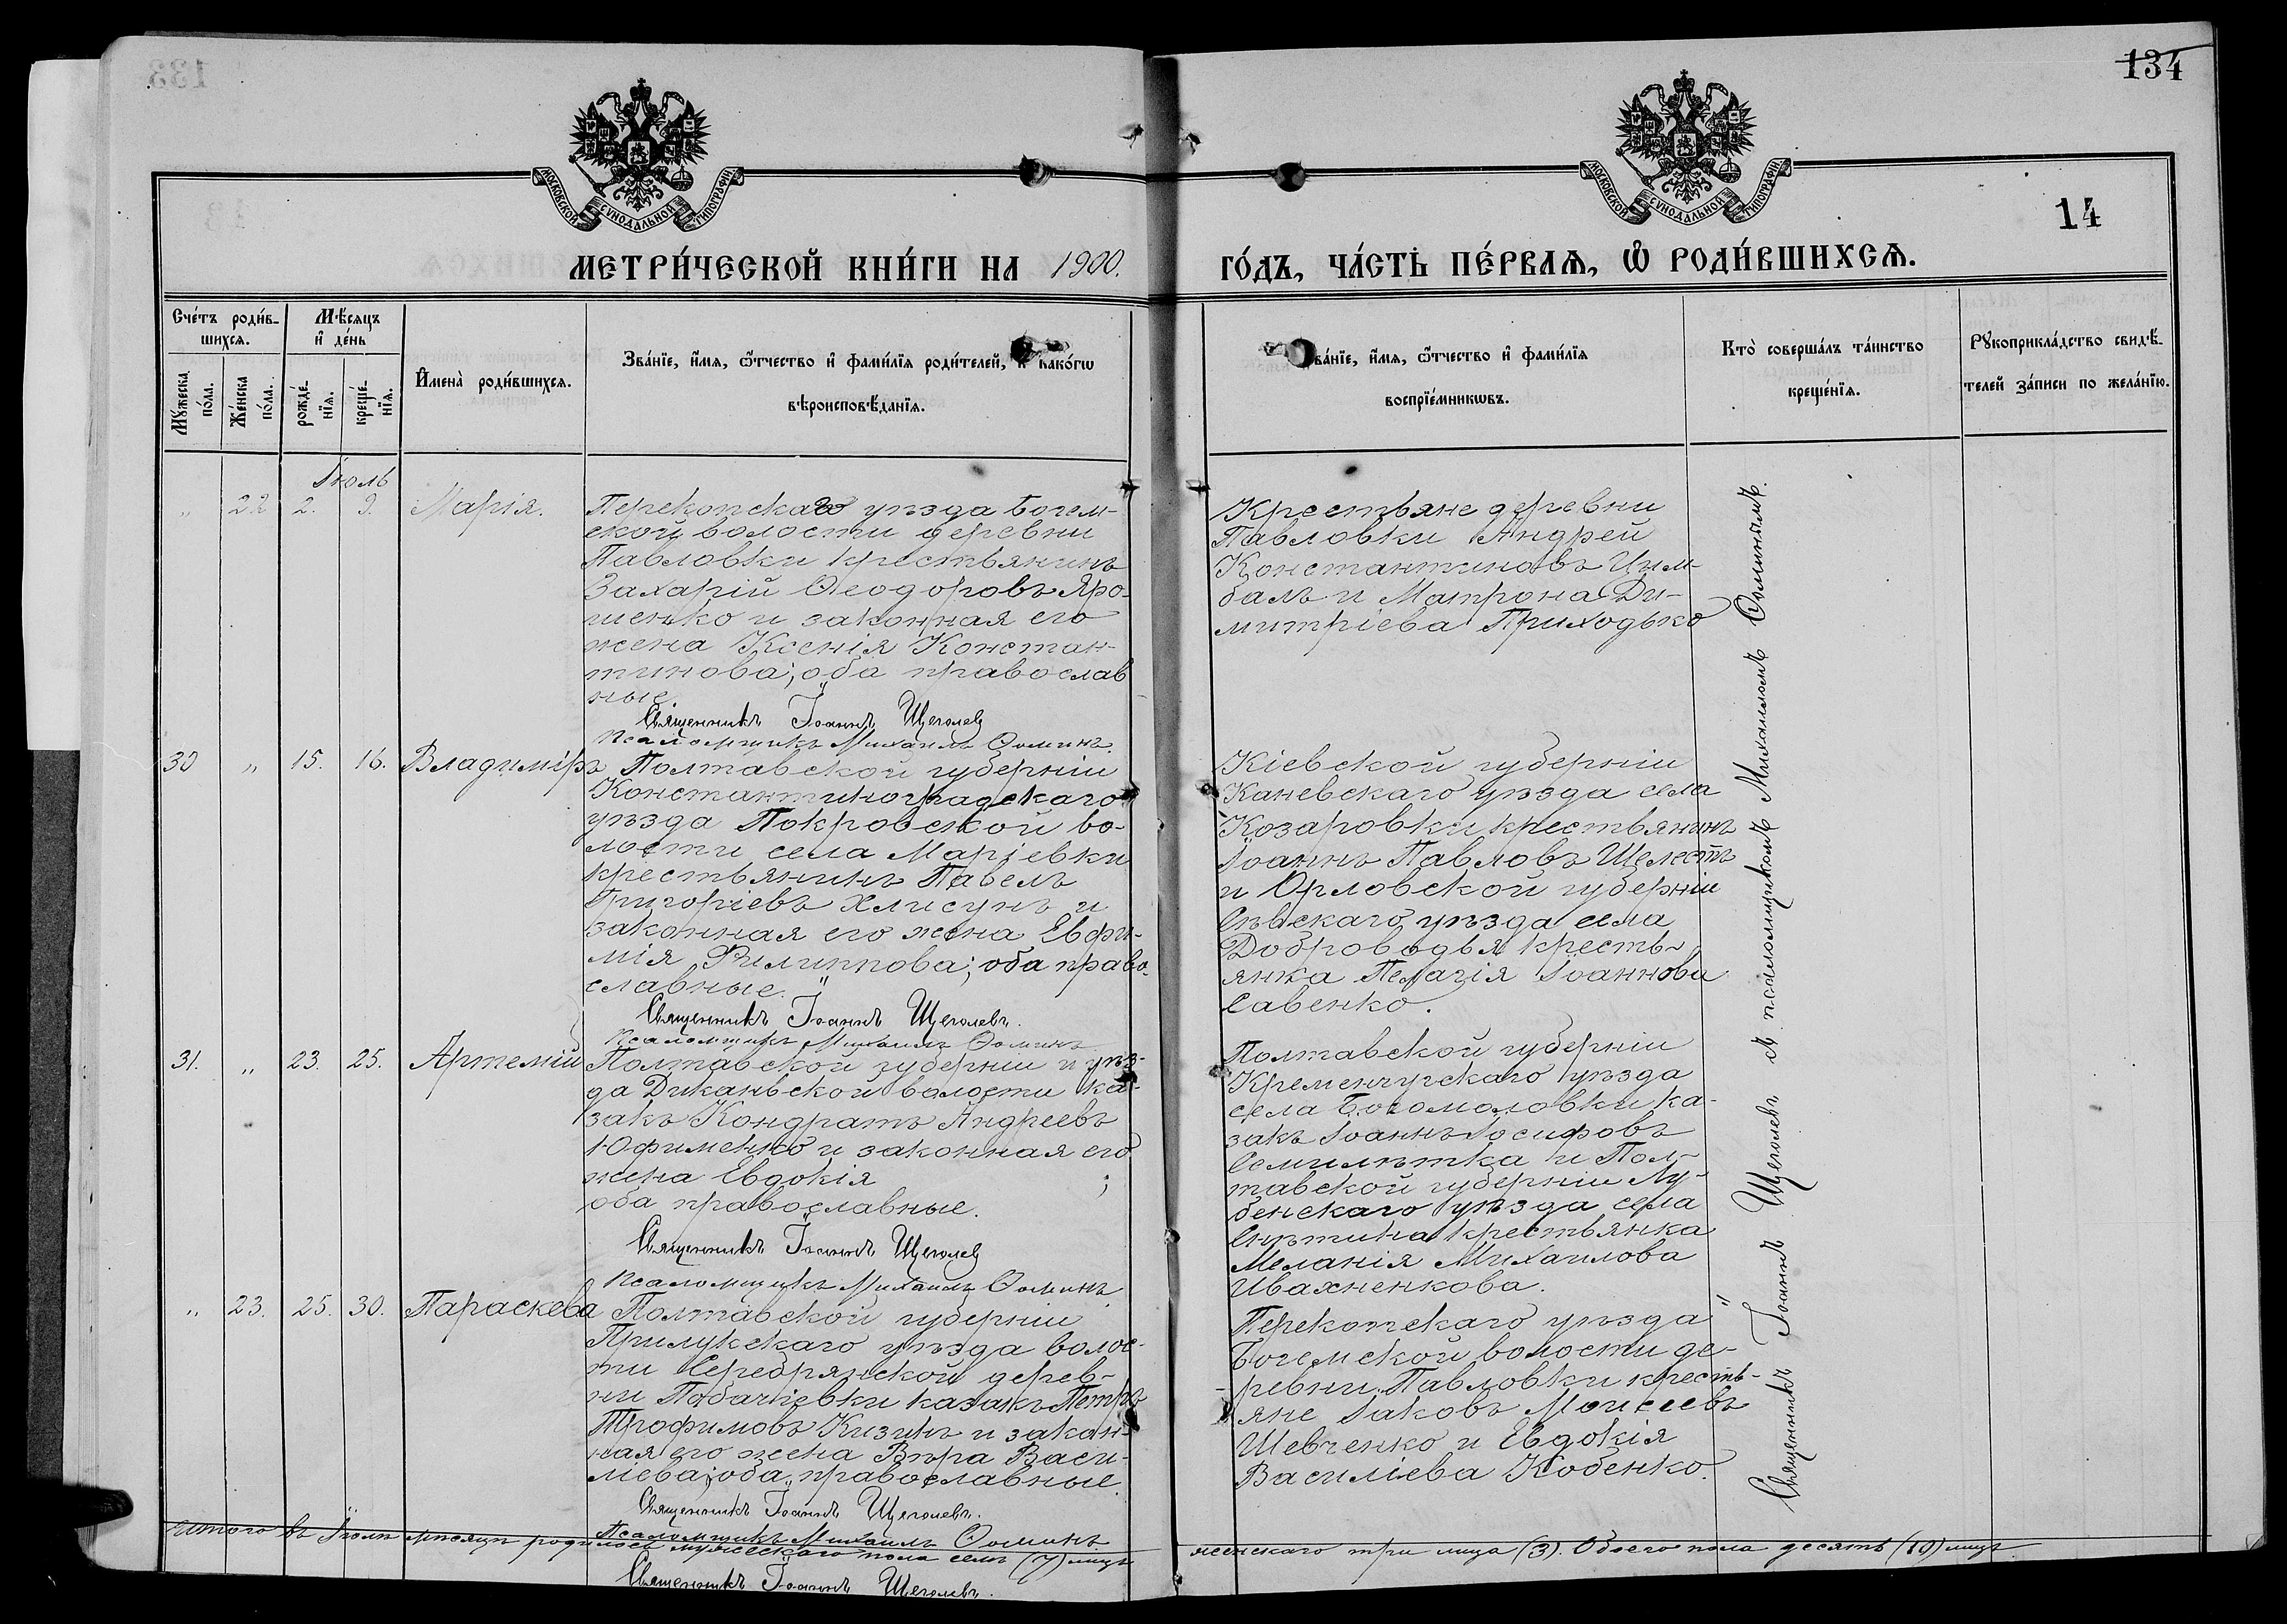 134
14
МОСКОВСКОЙ СѴНОДАЛЬНОЙ ТИПОГРАФІИ
МОСКОВСКОЙ СѴНОДАЛЬНОЙ ТИПОГРАФІИ
МЕТРИ́ЧЕСКОЙ КНИ́ГИ НА 1900. ГО́ДЪ, ЧА́СТЬ ПЕ́РВАѦ, Ѡ҆ РОДИ́ВШИХСѦ.
Сче́тъ роди́в-
шихсѧ.
Мꙋ́жеска
по́ла.
Же́нска
по́ла.
Мѣ́сѧцъ
и҆ де́нь
рожде́-
нїѧ.
креще́-
нїѧ.
И҆мена̀ роди́вшихсѧ.
Зва́нїе, и҆́мѧ, ѻ҆́тчество и҆ фами́лїѧ роди́телей, и҆ како́гѡ
вѣроисповѣ́данїѧ.
Зва́нїе, и҆́мѧ, ѻ҆́тчество и҆ фами́лїѧ
воспрїе́мникѡвъ.
Кто̀ соверша́лъ та́инство
креще́нїѧ.
Рꙋкоприкла́дство свидѣ́-
телей за́писи по жела́нїю.
Іюль
„ 22 2. 9. Марія.
Перекопскаго уѣзда Богем-
ской волости деревни
Павловки крестьянинъ
Захарій Ѳеодоровъ Яро-
шенко и законная его
жена Ксенія Констан-
тинова; оба православ
ные.
Священникъ Іоаннъ Щеголев
Псаломщикъ Михаилъ Ѳоминъ.
Крестьяне деревни
Павловки Андрей
Константиновъ Цым-
балъ и Матрона Ди-
митріева Приходько
30 „ 15. 16. Владиміръ
Полтавской губерніи
Константиноградскаго
уѣзда Покровской во-
лости села Маріевки
крестьянинъ Павелъ
Григоріевъ Хлисунъ и
законная его жена Евфи-
мія Филиппова; оба право-
славные.
Священникъ Іоаннъ Щеголевъ.
Псаломщикъ Михаилъ Ѳоминъ
Кіевской губерніи
Каневскаго уѣзда села
Козаровки крестьянинъ
Іоаннъ Павловъ Шелестъ
и Орловской губерніи
Сѣвскаго уѣзда села
Доброводья кресть-
янка Пелагія Іоаннова
Савенко.
31. „ 23. 25. Артемій
Полтавской губерніи и уѣз-
да Диканьской волости ка-
закъ Кондратъ Андреевъ
Юфименко и законная его
жена Евдокія ;
оба православные.
Священникъ Іоаннъ Щеголев
Псаломщикъ Михаилъ Ѳоминъ.
Полтавской губерніи
Кременчугскаго уѣзда
села Богомоловки ка-
закъ Іоаннъ Іосифовъ
Семилѣтка и Пол-
тавской губерніи Лу-
бенскаго уѣзда села
Снѣтина крестьянка
Меланія Михаилова
Ивахненкова.
„ 23. 25. 30. Параскева
Полтавской губерніи
Прилукскаго уѣзда волос-
ти Серебрянской дерев-
ни Побачіевки казакъ Петръ
Трофимовъ Кизинъ и закон-
ная его жена Вѣра Васи-
ліева; оба православные.
Священникъ Іоаннъ Щеголевъ.
Псаломщикъ Михаилъ Ѳоминъ
Перекопскаго уѣзда
Богемской волости де-
ревни Павловки кресть-
яне Іаковъ Моисеевъ
Шевченко и Евдокія
Василіева Кобенко.
Священникъ Іоаннъ Щеголевъ съ псаломщикомъ Михаиломъ Ѳоминымъ.
Итого въ Іюлѣ мѣсяцѣ родилось мужескаго пола семь (7) лицъ женскаго три лица (3). Обоего пола десять (10) лицъ
Священникъ Іоаннъ Щеголевъ.